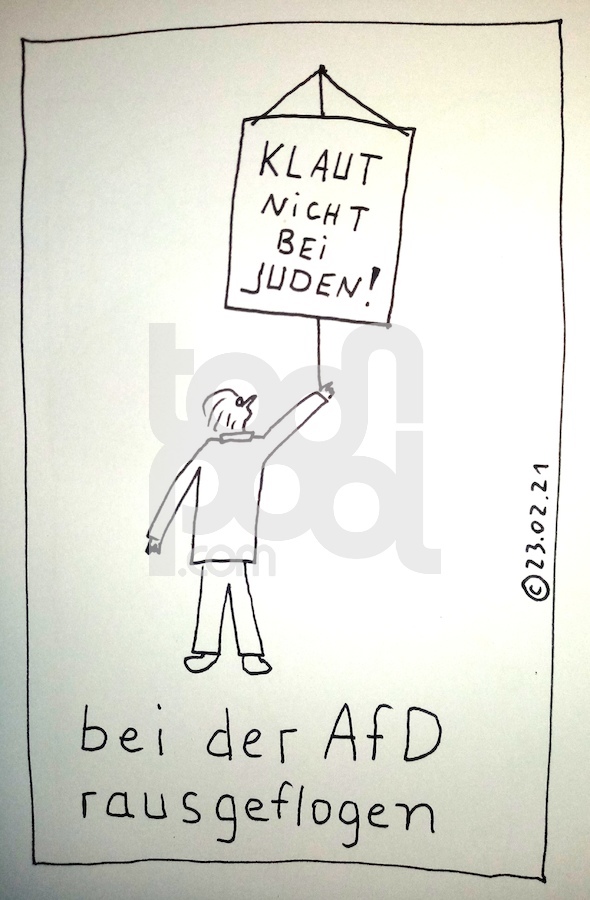 KLAUT
NiCHT
BEi
JUDEN!
toon
pool
.com
©23.02.21
bei der AfD
rausgeflogen